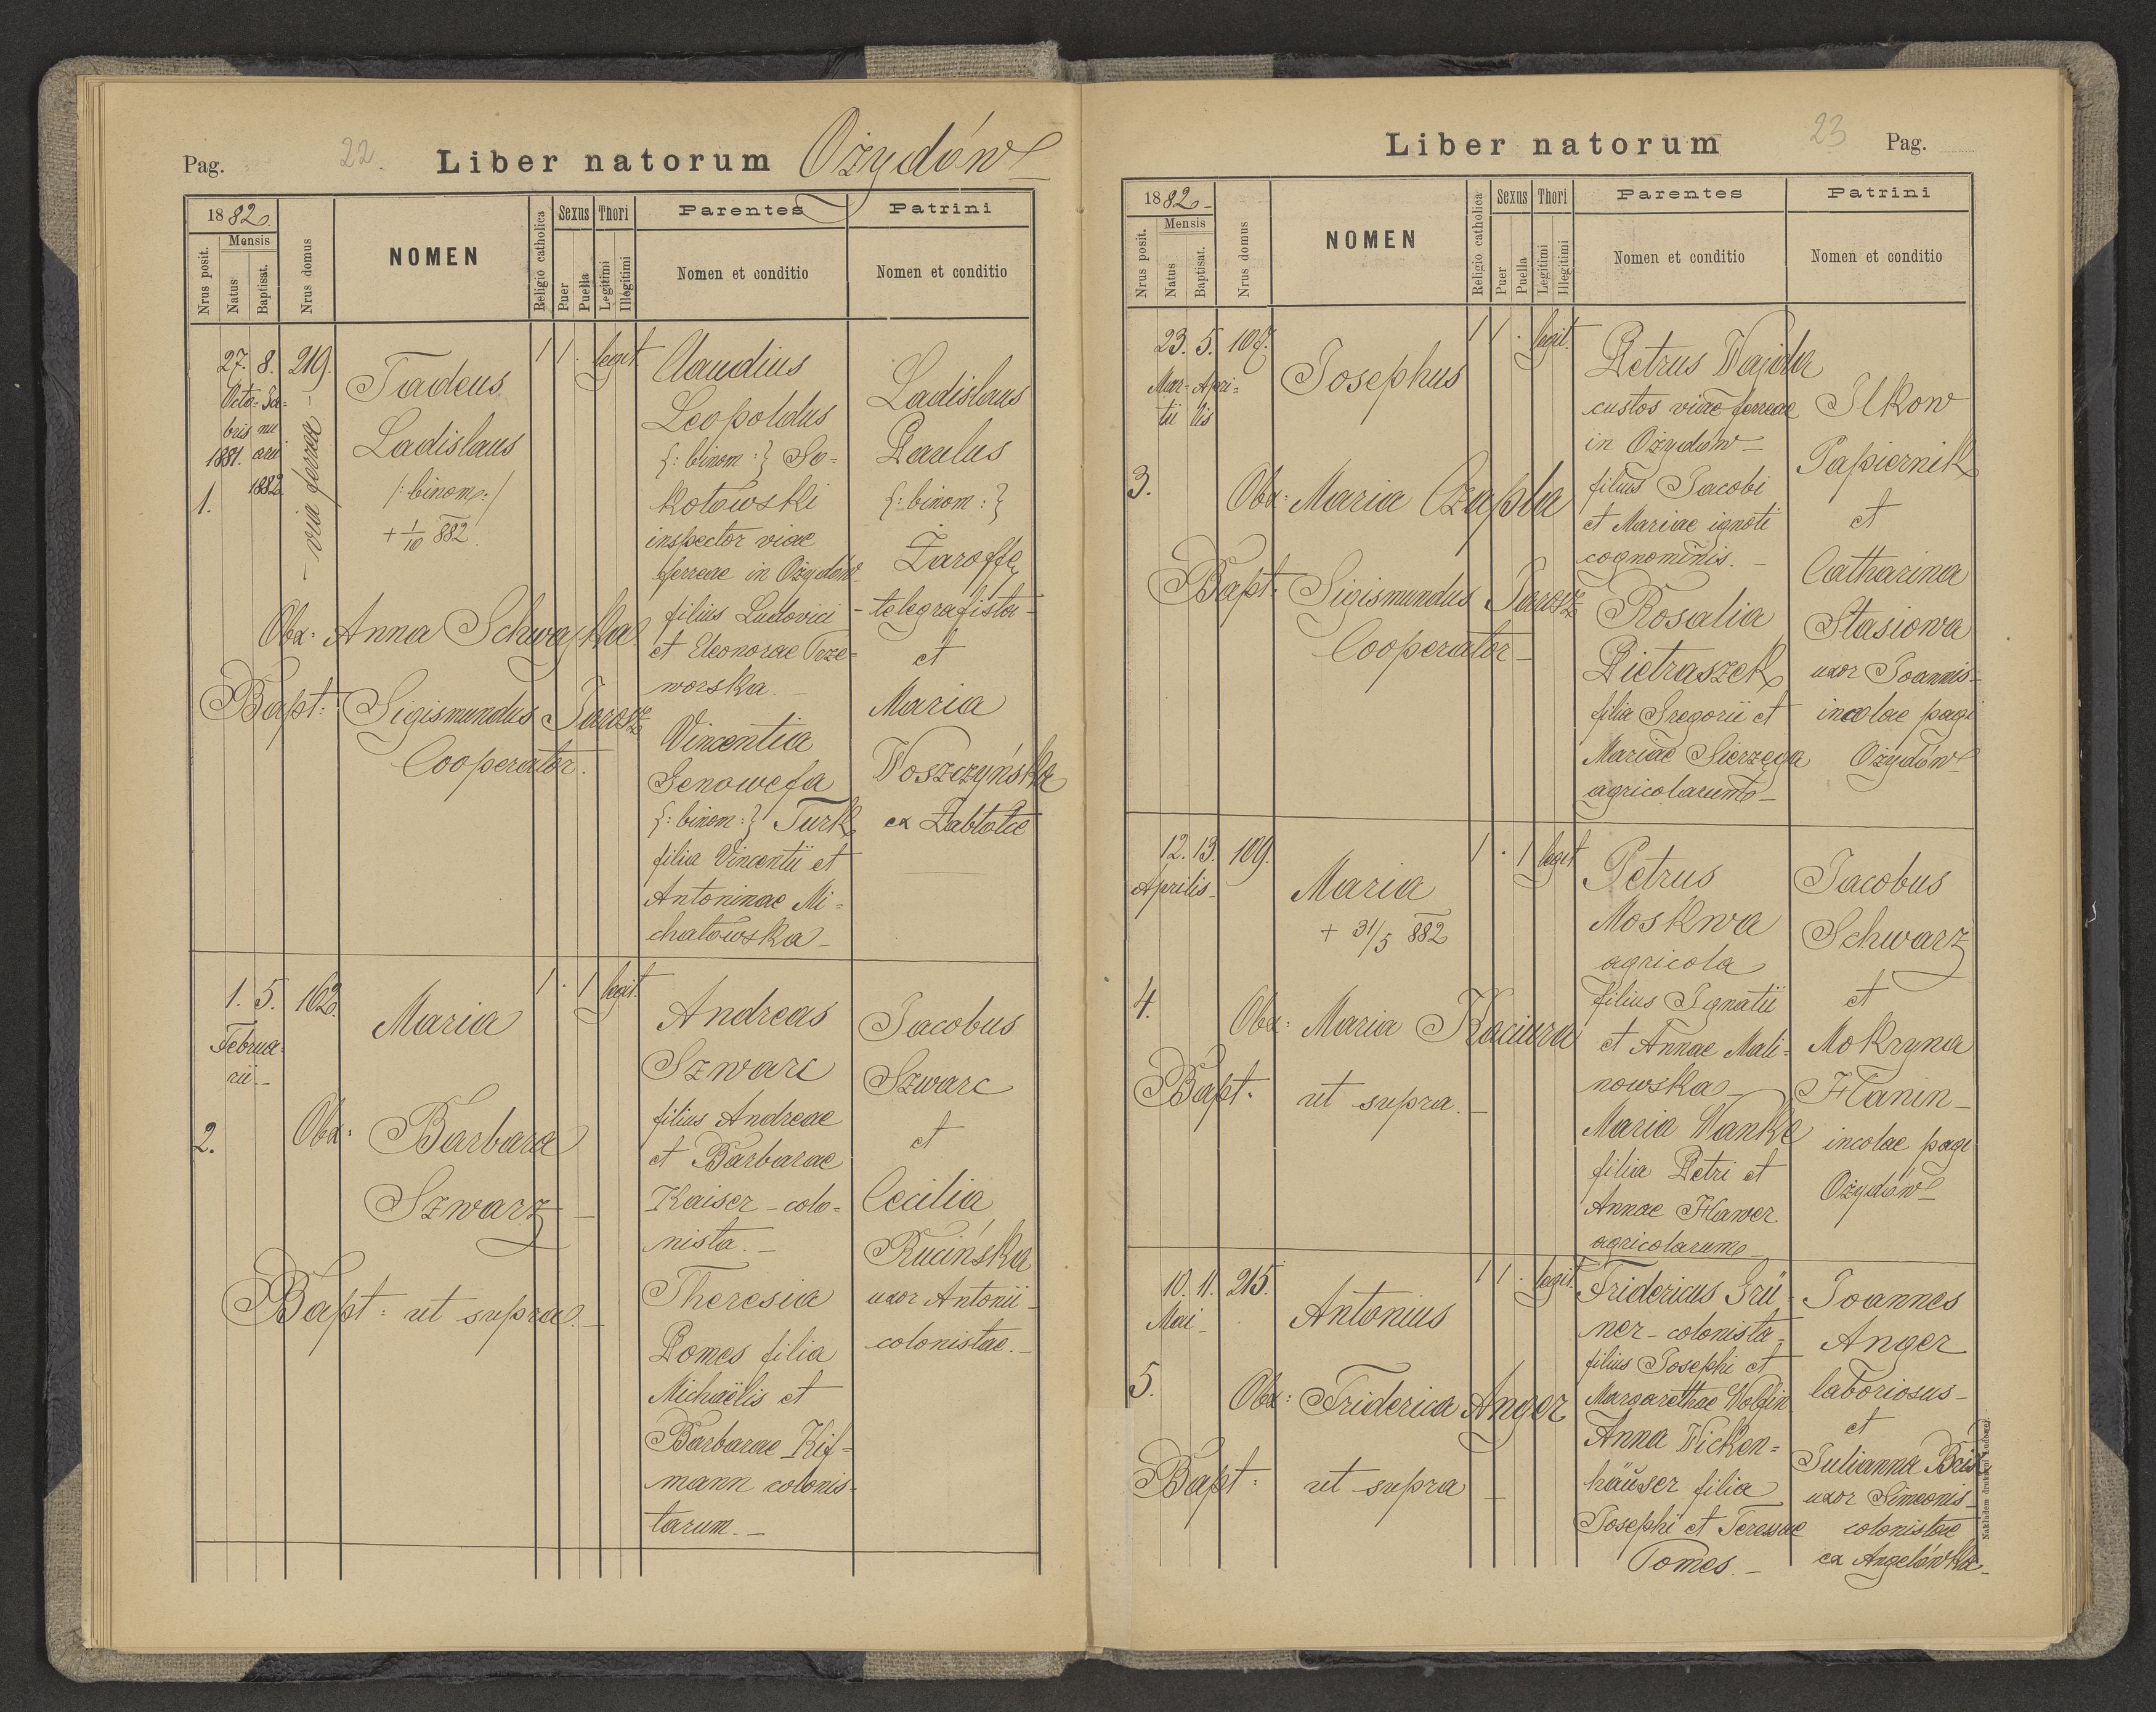 Pag. 22. Liber natorum Ożydów
1882.
Nrus posit.
Mensis
Natus
Baptisat.
Nrus domus
NOMEN
Religio catholica
Sexus
Puer
Puella
Thori
Legitimi
Illegitimi
Parentes
Nomen et conditio
Patrini
Nomen et conditio
1.
27. 8. 219.
Octo- Ja-
bris nu
1881. arii
1882
– via ferrea –
Tadeus
Ladislaus
/: binom: /
+ 1/10 882.
Obx: Anna Schwajka
Bapt: Sigismundus Jarosz
Cooperator.
1 1 . legit.
Claudius
Leopoldus
{: binom :} So-
kołowski
inspector viae
ferreae in Ożydów
filius Ludovici
et Eleonorae Prze-
worska. –
Vincentia
Genowefa
{: binom :} Turk
filia Vincentii et
Antoninae Mi-
chałowska –
Ladislaus
Paulus
{: binom :}
Zaroffe
- telegrafista -
et
Maria
Woszczyńska
ex Zabłotce
2.
1. 5. 162.
Februa-
rii. –
Maria
Obx: Barbara
Szwarz –
Bapt: ut supra. –
1 . 1 legit.
Andreas
Szwarc
filius Andreae
et Barbarae
Kaiser – colo-
nista. –
Theresia
Domes filia
Michaëlis et
Barbarae Kif-
mann colonis-
tarum. –
Jacobus
Szwarc
et
Cecilia
Rucińska
uxor Antonii –
colonistae. –
Liber natorum 23 Pag.
1882 –
Nrus posit.
Mensis
Natus
Baptisat.
Nrus domus
NOMEN
Religio catholica
Sexus
Puer
Puella
Thori
Legitimi
Illegitimi
Parentes
Nomen et conditio
Patrini
Nomen et conditio
3.
23. 5. 107.
Mar- Apri-
tii lis
Josephus
Obx: Maria Czapla
Bapt: Sigismundus Jarosz
Cooperator –
1 1 . legit.
Petrus Wajda
custos viae ferreae
in Ożydów –
filius Jacobi
et Mariae ignoti
cognominis. –
Rosalia
Pietraszek
filia Gregorii et
Mariae Sierzęga
agricolarum –
Ilkow
Papiernik
et
Catharina
Stasiowa
uxor Joannis –
incolae pagi
Ożydów
4.
12. 13. 109.
Aprilis –
Maria
+ 31/5 882
Obx: Maria Kaciura
Bapt. ut supra. –
1 . 1 legit
Petrus
Moskwa
agricola
filius Ignatii
et Annae Mali-
nowska –
Maria Wanke
filia Petri et
Annae Hawer
agricolarum –
Jacobus
Schwarz
et
Mokryna
Hanin –
incolae pagi
Ożydów –
5.
10. 11. 215.
Mai –
Antonius
Obx: Friderica Anger
Bapt: ut supra –
1 1 . legit.
Fridericus Grü-
ner – colonista –
filius Josephi et
Margarethae Wolfin
Anna Wicken-
häuser filia
Josephi et Teressae
Tomes. –
Joannes
Anger
laboriosus –
et
Julianna Bris
uxor Simeonis –
colonistae
ex Angelówka –